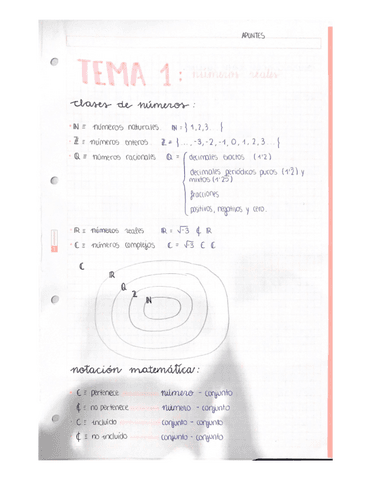 APUNTES
TEMA 1: números reales
clases de números:
· N = números naturales. N = { 1, 2, 3... }
· Z = números enteros. Z = { ..., -3, -2, -1, 0, 1, 2, 3... }
· Q = números racionales. Q = { decimales exactos (1'2)
decimales periódicos puros (1'2̂) y
mixtos (1'25̂)
fracciones
positivos, negativos y cero.
· R = números reales R = √-3 ∉ R
· C = números complejos C = √3 ⊂ C
C
R
Q
Z
N
notación matemática:
· ∈ = pertenece número - conjunto
· ∉ = no pertenece número - conjunto
· ⊂ = incluido conjunto - conjunto
· ⊄ = no incluido conjunto - conjunto